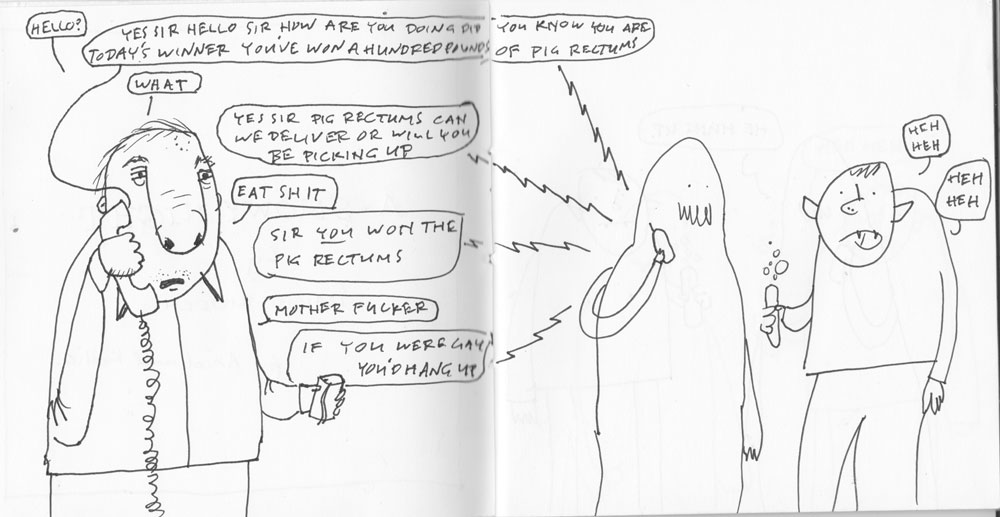 HELLO?
YES SIR HELLO SIR HOW ARE YOU DOING DID YOU KNOW YOU ARE
TODAY'S WINNER YOU'VE WON A HUNDRED POUNDS OF PIG RECTUMS
WHAT
YES SIR PIG RECTUMS CAN
WE DELIVER OR WILL YOU
BE PICKING UP
EAT SHIT
SIR YOU WON THE
PIG RECTUMS
MOTHER FUCKER
IF YOU WERE GAY
YOU'D HANG UP
HEH
HEH
HEH
HEH